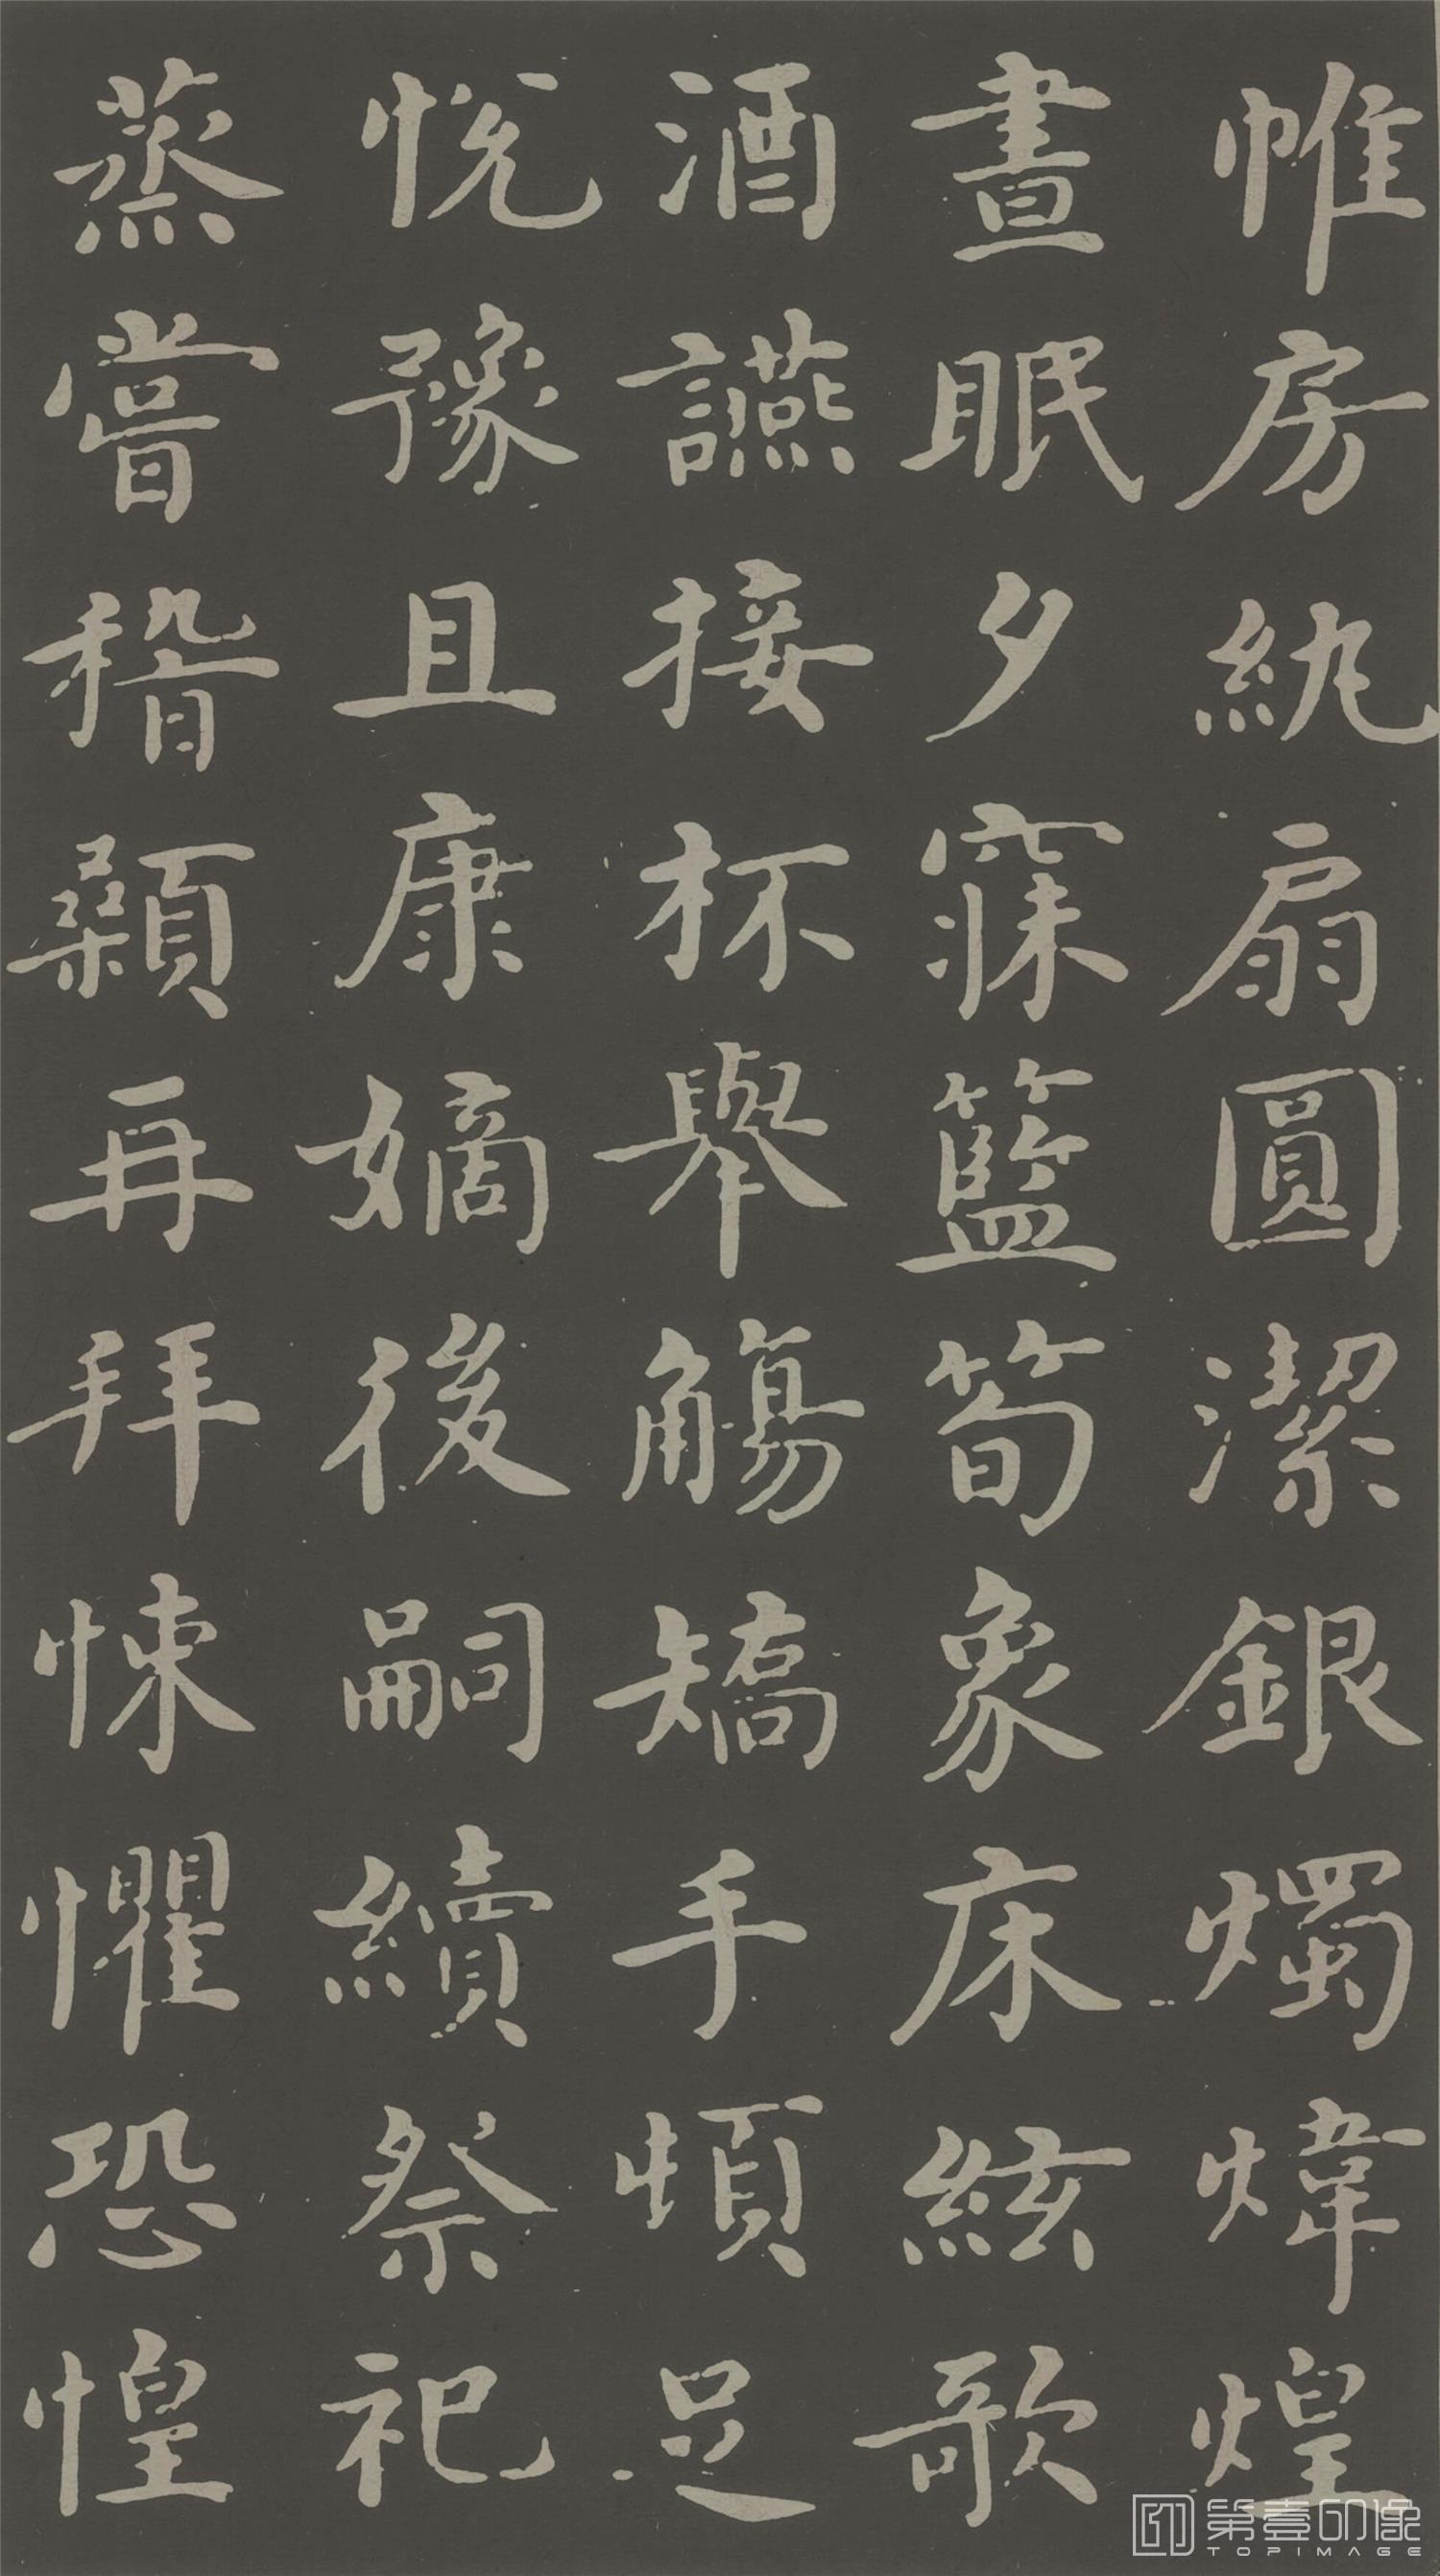 帷房紈扇圓潔銀燭煒煌
晝眠夕寐籃筍象床絃歌
酒讌接杯舉觴矯手頓足
悅豫且康嫡後嗣續祭祀
蒸嘗稽顙再拜悚懼恐惶
第壹印像
TOPIMAGE